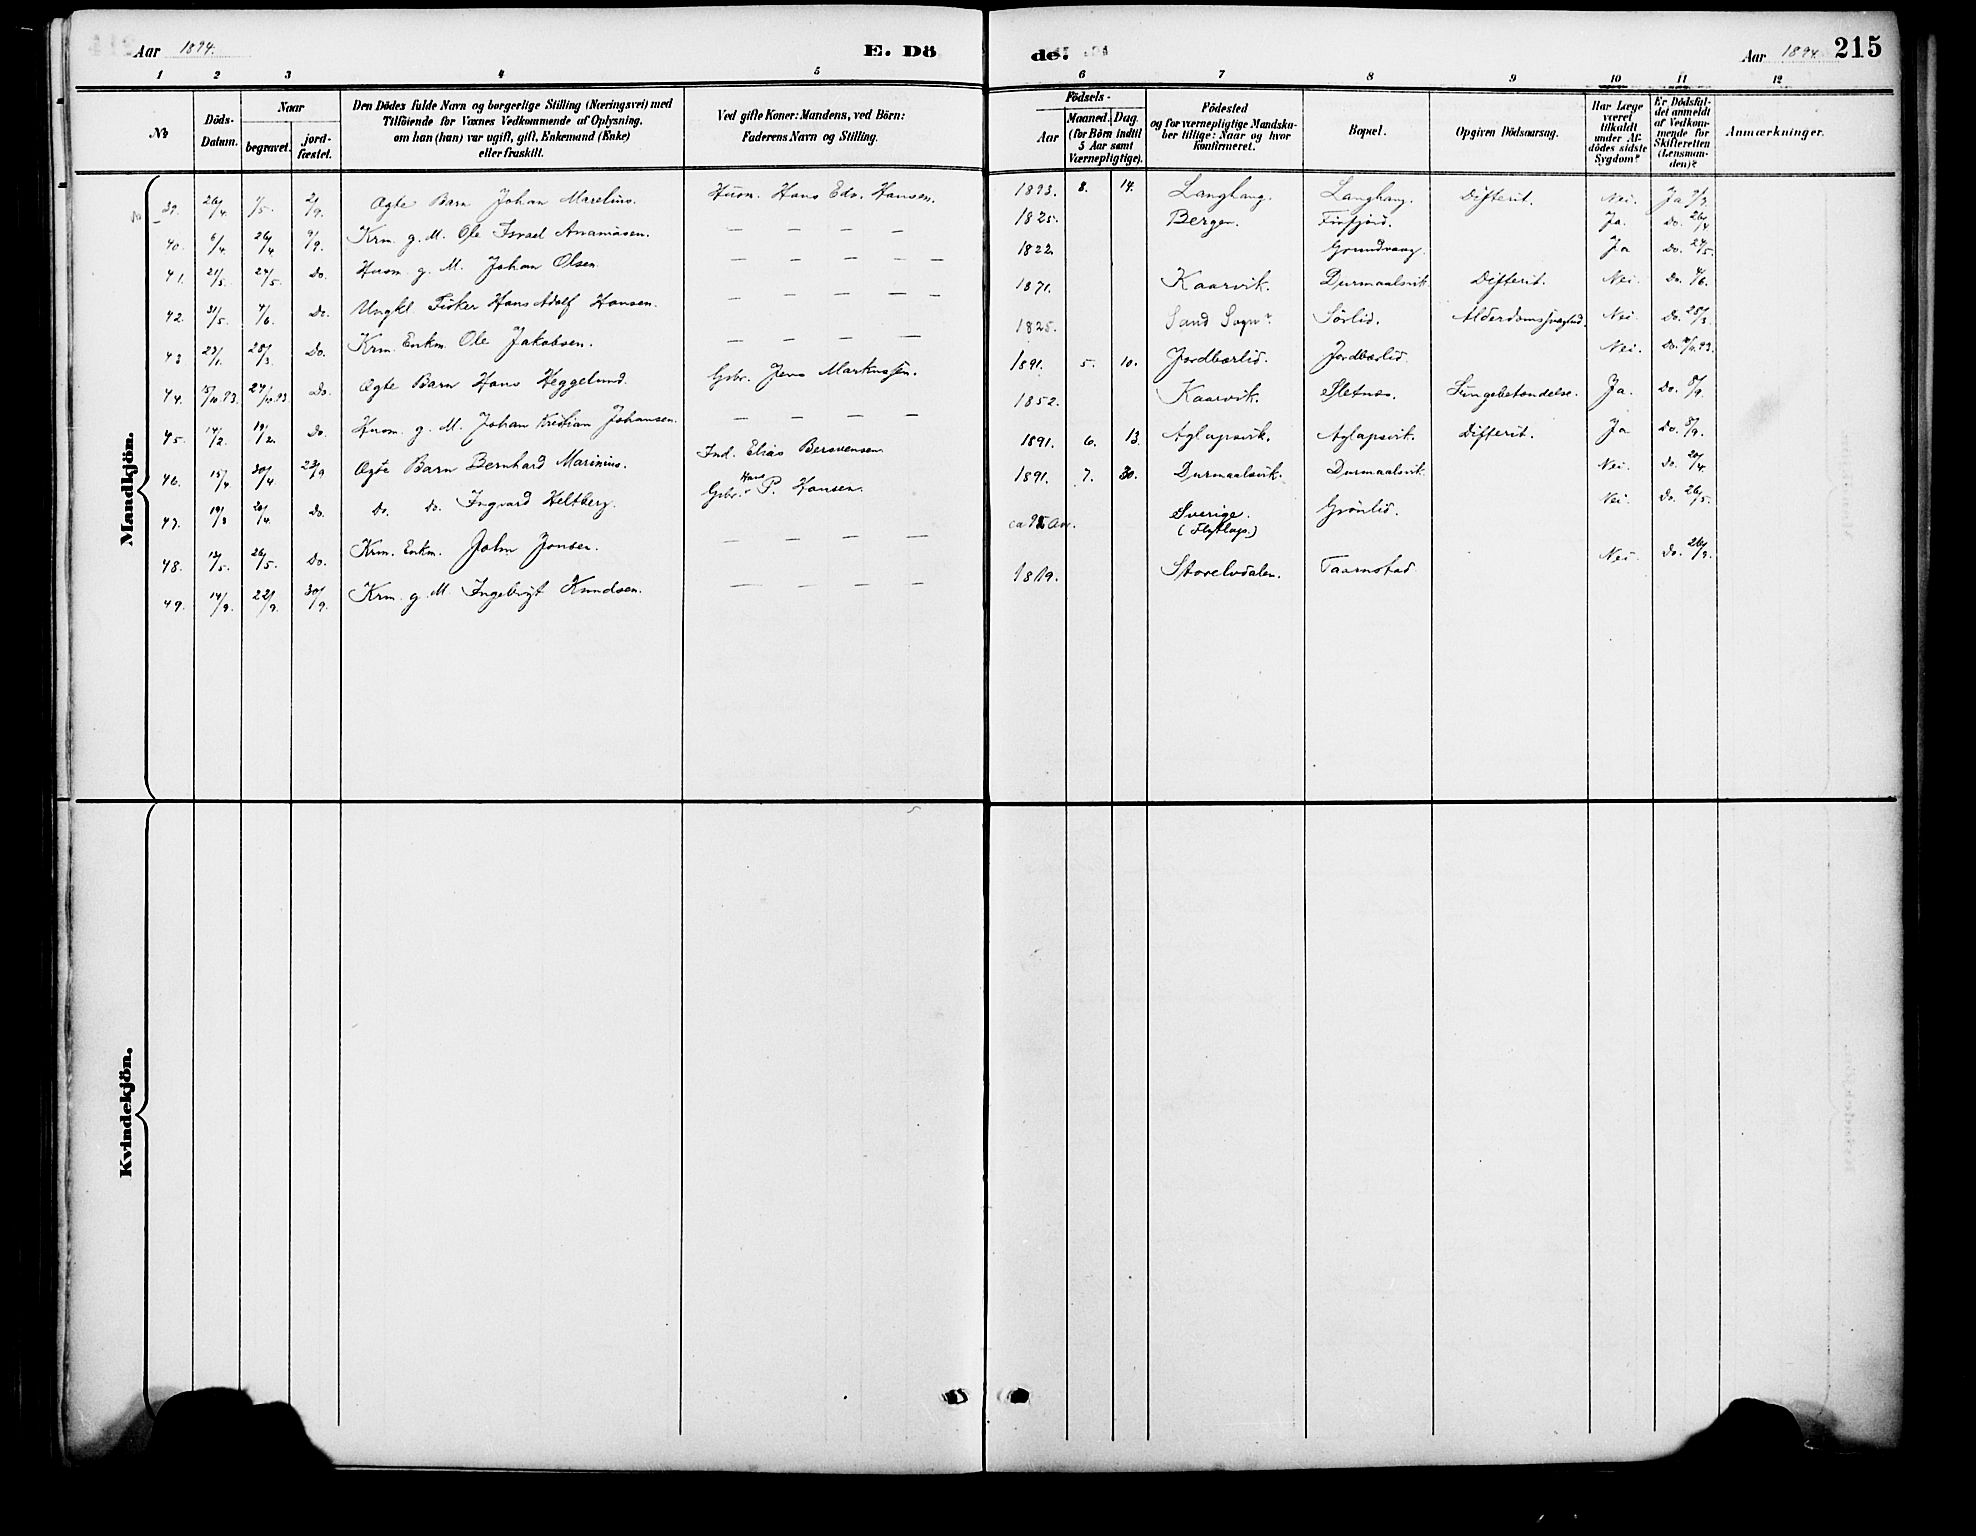 Aar 1894.
E. Dö
de.
Aar 1894.
215
1 2 3 4 5 6 7 8 9 10 11 12
No
Döds-Datum.
Naar
begravet.
jord-fæstet.
Den Dödes fulde Navn og borgerlige Stilling (Næringsvei) med Tilföiende for Voxnes Vedkommende af Oplysning, om han (hun) var ugift, gift, Enkemand (Enke) eller fraskilt.
Ved gifte Koner: Mandens, ved Börn: Faderens Navn og Stilling.
Födsels-
Aar
Maaned. Dag.
(for Börn indtil 5 Aar samt Værnepligtige).
Födested og for værnepligtige Mandska-ber tillige: Naar og hvor konfirmeret.
Bopæl.
Opgiven Dödsaarsag.
Har Læge været tilkaldt under Af-dödes sidste Sygdom?
Er Dödsfal-det anmeldt af Vedkom-mende for Skifteretten (Lensman-den)?
Anmærkninger.
Mandkjön.
39. 26/4. 1/5. 2/9. Ægte Barn Johan Marelius. Husm. Hans Edv. Hansen. 1893. 8. 14. Langhang. Langhang. Difterit. Nei. Ja
40. 6/4 26/4 9/9. Krm. g. M. Ole Israel Ananiasen. — — — — 1825. Bergen. Finfjord. Ja. Do. 26/4
41. 21/5. 24/5. Do. Husm. g. M. Johan Olsen. — — — — — 1822. Grundvaag. Ja Do. 24/5.
42. 31/5. 4/6. Do. Ungkl. Fisker Hans Adolf Hansen. — — — — — 1871. Kaarvik. Durmaalsvik. Difterit. Nei. Do. 4/6.
43 23/1. 28/3. Do. Krm. Enkm. Ole Jakobsen. — — — — 1825. Sand Sogn. Sörlid. Alderdomssvaghed. Nei. Do. 28/3.
44. 15/10.93. 24/10.93 Do. Ægte Barn Hans Heggelund. Gbr. Jens Markussen. 1891. 5. 10. Jordbærlid. Jordbærlid. Nei. Do.
45. 14/2. 19/2. Do. Husm. g. M. Johan Kristian Johansen. — — — — 1852. Kaarvik. Sletnes. Lungebetændelse. Ja. Do. 8/9.
46. 15/4 30/4. 23/9 Ægte Barn Bernhard Marinius. Ind. Elias Bersvensen 1891. 6. 13. Aglapsvik. Aglapsvik. Difterit. Ja Do. 8/9.
47. 19/3 20/4. Do. Do. Do. Ingvard Heltberg. Gbr. Hans P. Hansen. 1891. 7. 30. Durmaalsvik. Durmaalsvik. Nei. Do. 20/4.
48. 13/5. 26/5. Do. Krm. Enkm. John Jonsen. — — — — ca 95 Aar. Sverige. Grönlid. Nei Do. 26/5.
49. 14/9. 22/9. 30/9. Krm. g. M. Ingebrigt Knudsen. — — — — 1819. Storelvdalen. Taarnstad. Nei Do.
Kvindekjön.